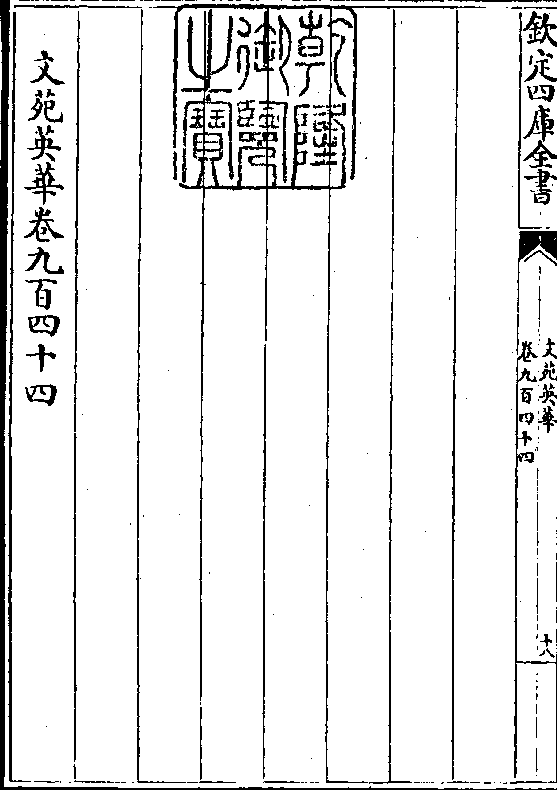 欽定四庫全書
文苑英華
卷九百四十四
十八
乾隆
御覽
之寶
文苑英華卷九百四十四